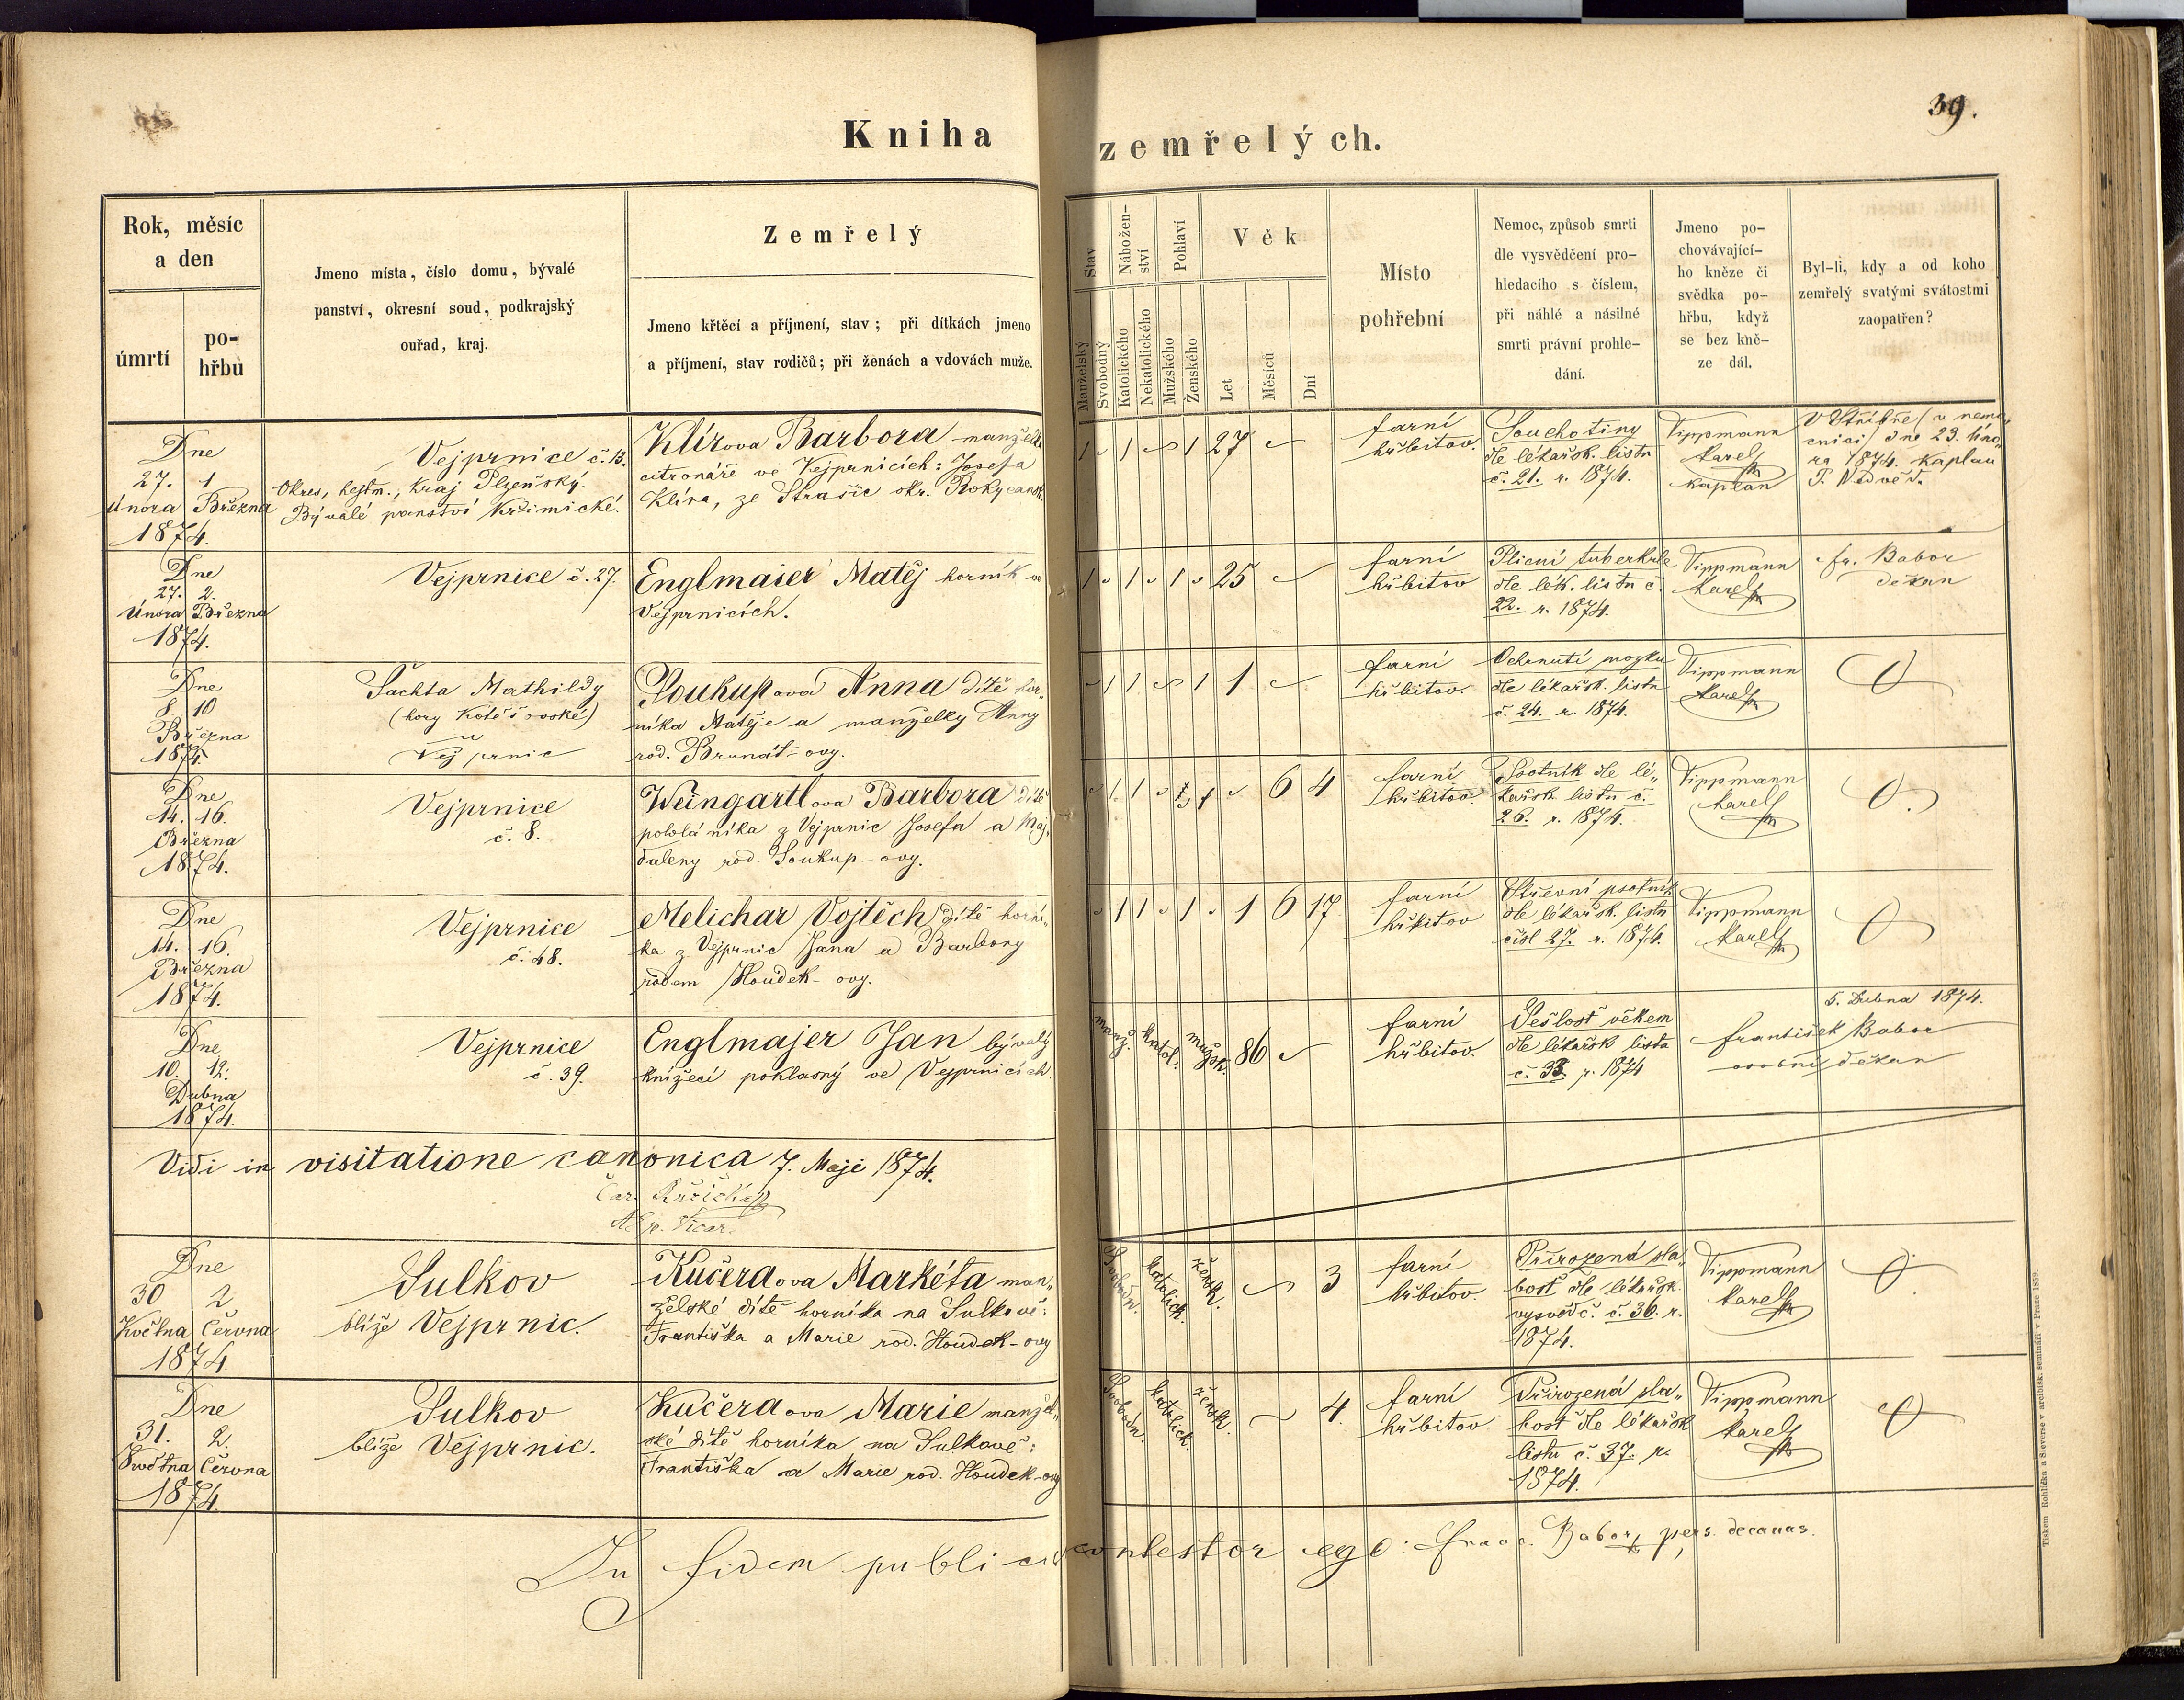 39.
Kniha zemřelých.
Rok, měsíc
a den
úmrtí
po-
hřbu
Jmeno místa, číslo domu, bývalé
panství, okresní soud, podkrajský
ouřad, kraj.
Zemřelý
Jmeno křtěcí a příjmení, stav; při dítkách jmeno
a příjmení, stav rodičů; při ženách a vdovách muže.
Stav
Manželský
Svobodný
Nábožen-
ství
Katolického
Nekatolického
Pohlaví
Mužského
Ženského
Věk
Let
Měsíců
Dní
Místo
pohřební
Nemoc, způsob smrti
dle vysvědčení pro-
hledacího s číslem,
při náhlé a násilné
smrti právní prohle-
dání.
Jmeno po-
chovávající-
ho kněze či
svědka po-
hřbu, když
se bez kně-
ze dál.
Byl-li, kdy a od koho
zemřelý svatými svátostmi
zaopatřen?
Dne
27. 1
Února Března
1874.
Vejprnice č. 13.
Okres, hejtm., Kraj Plzeňský.
Bývalé panství Křimické.
Klírova Barbora manželka
citronáře ve Vejprnicích: Josefa
Klíra, ze Strašic okr. Rokycansk.
1 1 1 27
farní
hřbitov.
Souchotiny
dle lékařsk. listu
č. 21. r. 1874.
Tippmann
Karel
kaplan
V Stříbře (v nemo-
cnici) dne 23. Úno-
ra 1874. Kaplan
P. Nedvěd.
Dne
27. 2.
Února Března
1874.
Vejprnice č. 27.
Englmaier Matěj horník ve
Vejprnicích.
1 1 1 25
farní
hřbitov
Plicní tuberkule
dle lék. listu č.
22. r. 1874.
Tippmann
Karel
fr. Babor
děkan
Dne
8. 10
Března
1874.
Šachta Mathildy
(hory Kotěšovské)
Vejprnic
Soukupova Anna dítě hor-
níka Matěje a manželky Anny
rod. Brunát-ovy.
1 1 1 1
farní
hřbitov.
Ochrnutí mozku
dle lékařsk. listu
č. 24. r. 1874.
Tippmann
Karel
Dne
14. 16.
Března
1874.
Vejprnice
č. 8.
Weingartlova Barbora dítě
pololáníka z Vejprnic Josefa a Maj-
daleny rod. Soukup-ovy.
1 1 1 6 4
farní
hřbitov.
Psotník dle lé-
kařsk. listu č.
26. r. 1874.
Tippmann
Karel
Dne
14. 16.
Března
1874.
Vejprnice
č. 48.
Melichar Vojtěch dítě horní-
ka z Vejprnic Jana a Barbory
rodem Houdek-ovy.
1 1 1 1 6 17
farní
hřbitov
Střevní psotník
dle lékařsk. listu
čísl 27. r. 1874.
Tippmann
Karel
Dne
10. 12.
Dubna
1874.
Vejprnice
č. 39.
Englmajer Jan bývalý
knížecí poklasný ve Vejprnicích.
manž. katol. mužsk. 86
farní
hřbitov.
Sešlost věkem
dle lékařsk listu
č. 33. r. 1874
František Babor
osobní děkan
5. Dubna 1874.
Vidi in visitatione canonica 7. Maji 1874.
Dne
30 2
Května Června
1874
Sulkov
blíže Vejprnic.
Kučeraova Markéta man-
želské dítě horníka na Sulkově:
Františka a Marie rod. Houdek-ovy
Svobodn. katolick. žensk. 3
farní
hřbitov
Přirozená sla-
bost dle lékařsk.
vysvědč. č. 36. r.
1874.
Tippmann
Karel
Dne
31. 2.
Května Června
1874.
Sulkov
blíže Vejprnic.
Kučeraova Marie manžel-
ské dítě horníka na Sulkově:
Františka a Marie rod. Houdek-ovy
Svobodn. katolick. žensk. 4.
farní
hřbitov.
Přirozená sla-
bost dle lékařsk
listu č. 37. r.
1874.
Tippmann
Karel
In fidem publicam contestor ego: Franc. Babor, pers. decanus.
Tiskem Rohlíčka a Sieverse v arcibisk. semináři v Praze 1859.